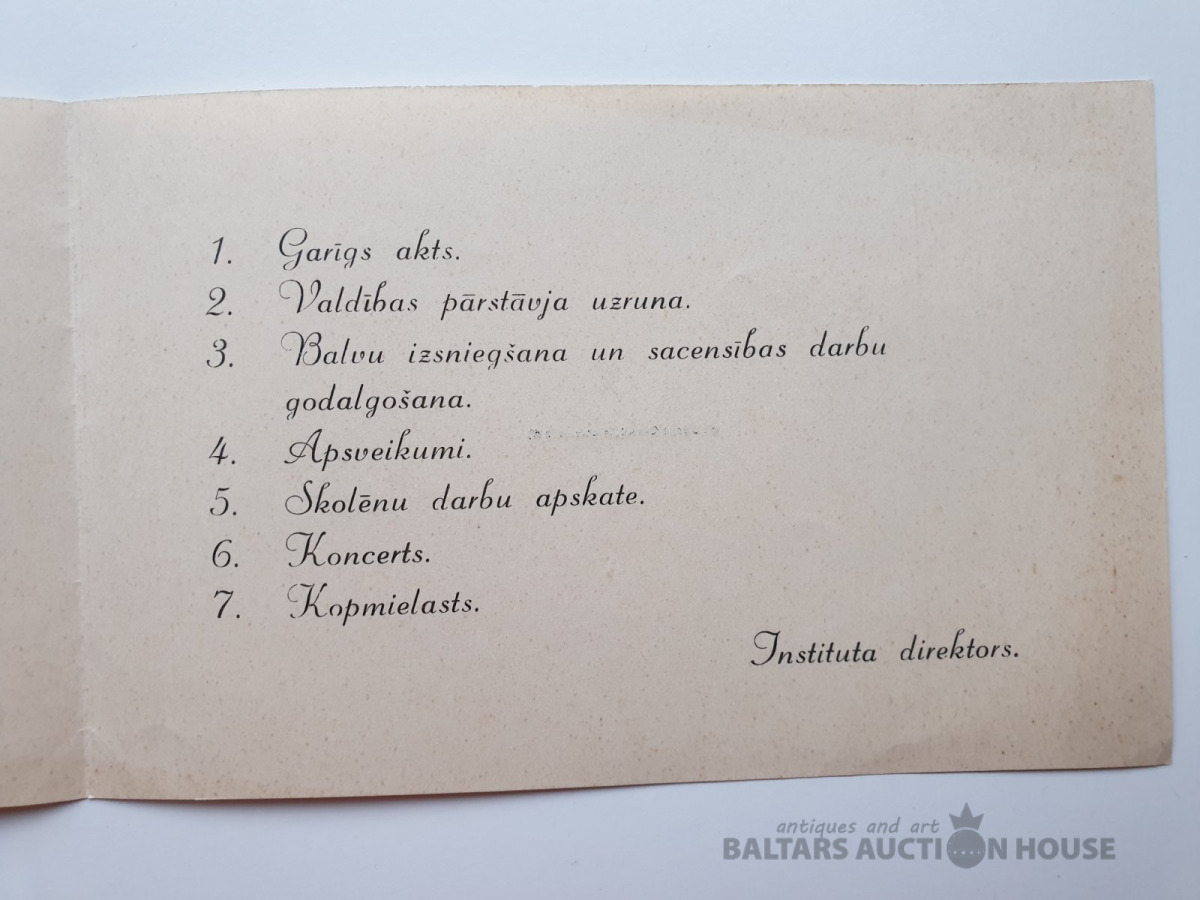 1. Garīgs akts.
2. Valdības pārstāvja uzruna.
3. Balvu izsniegšana un sacensības darbu
godalgošana.
4. Apsveikumi.
5. Skolēnu darbu apskate.
6. Koncerts.
7. Kopmielasts.
Instituta direktors.
antiques and art
BALTARS AUCTION HOUSE